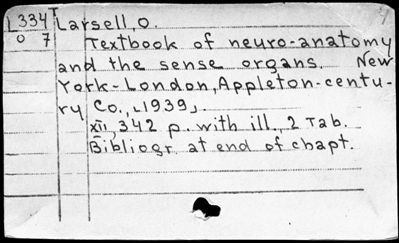 L334 Larsell, O.
0 7 Textbook of neuro-anatomy
and the sense organs. New
York-London, Appleton-centu-
ry Co., [1939].
XII, 342 p. with ill., 2 Tab.
Bibliogr. at end of chapt.